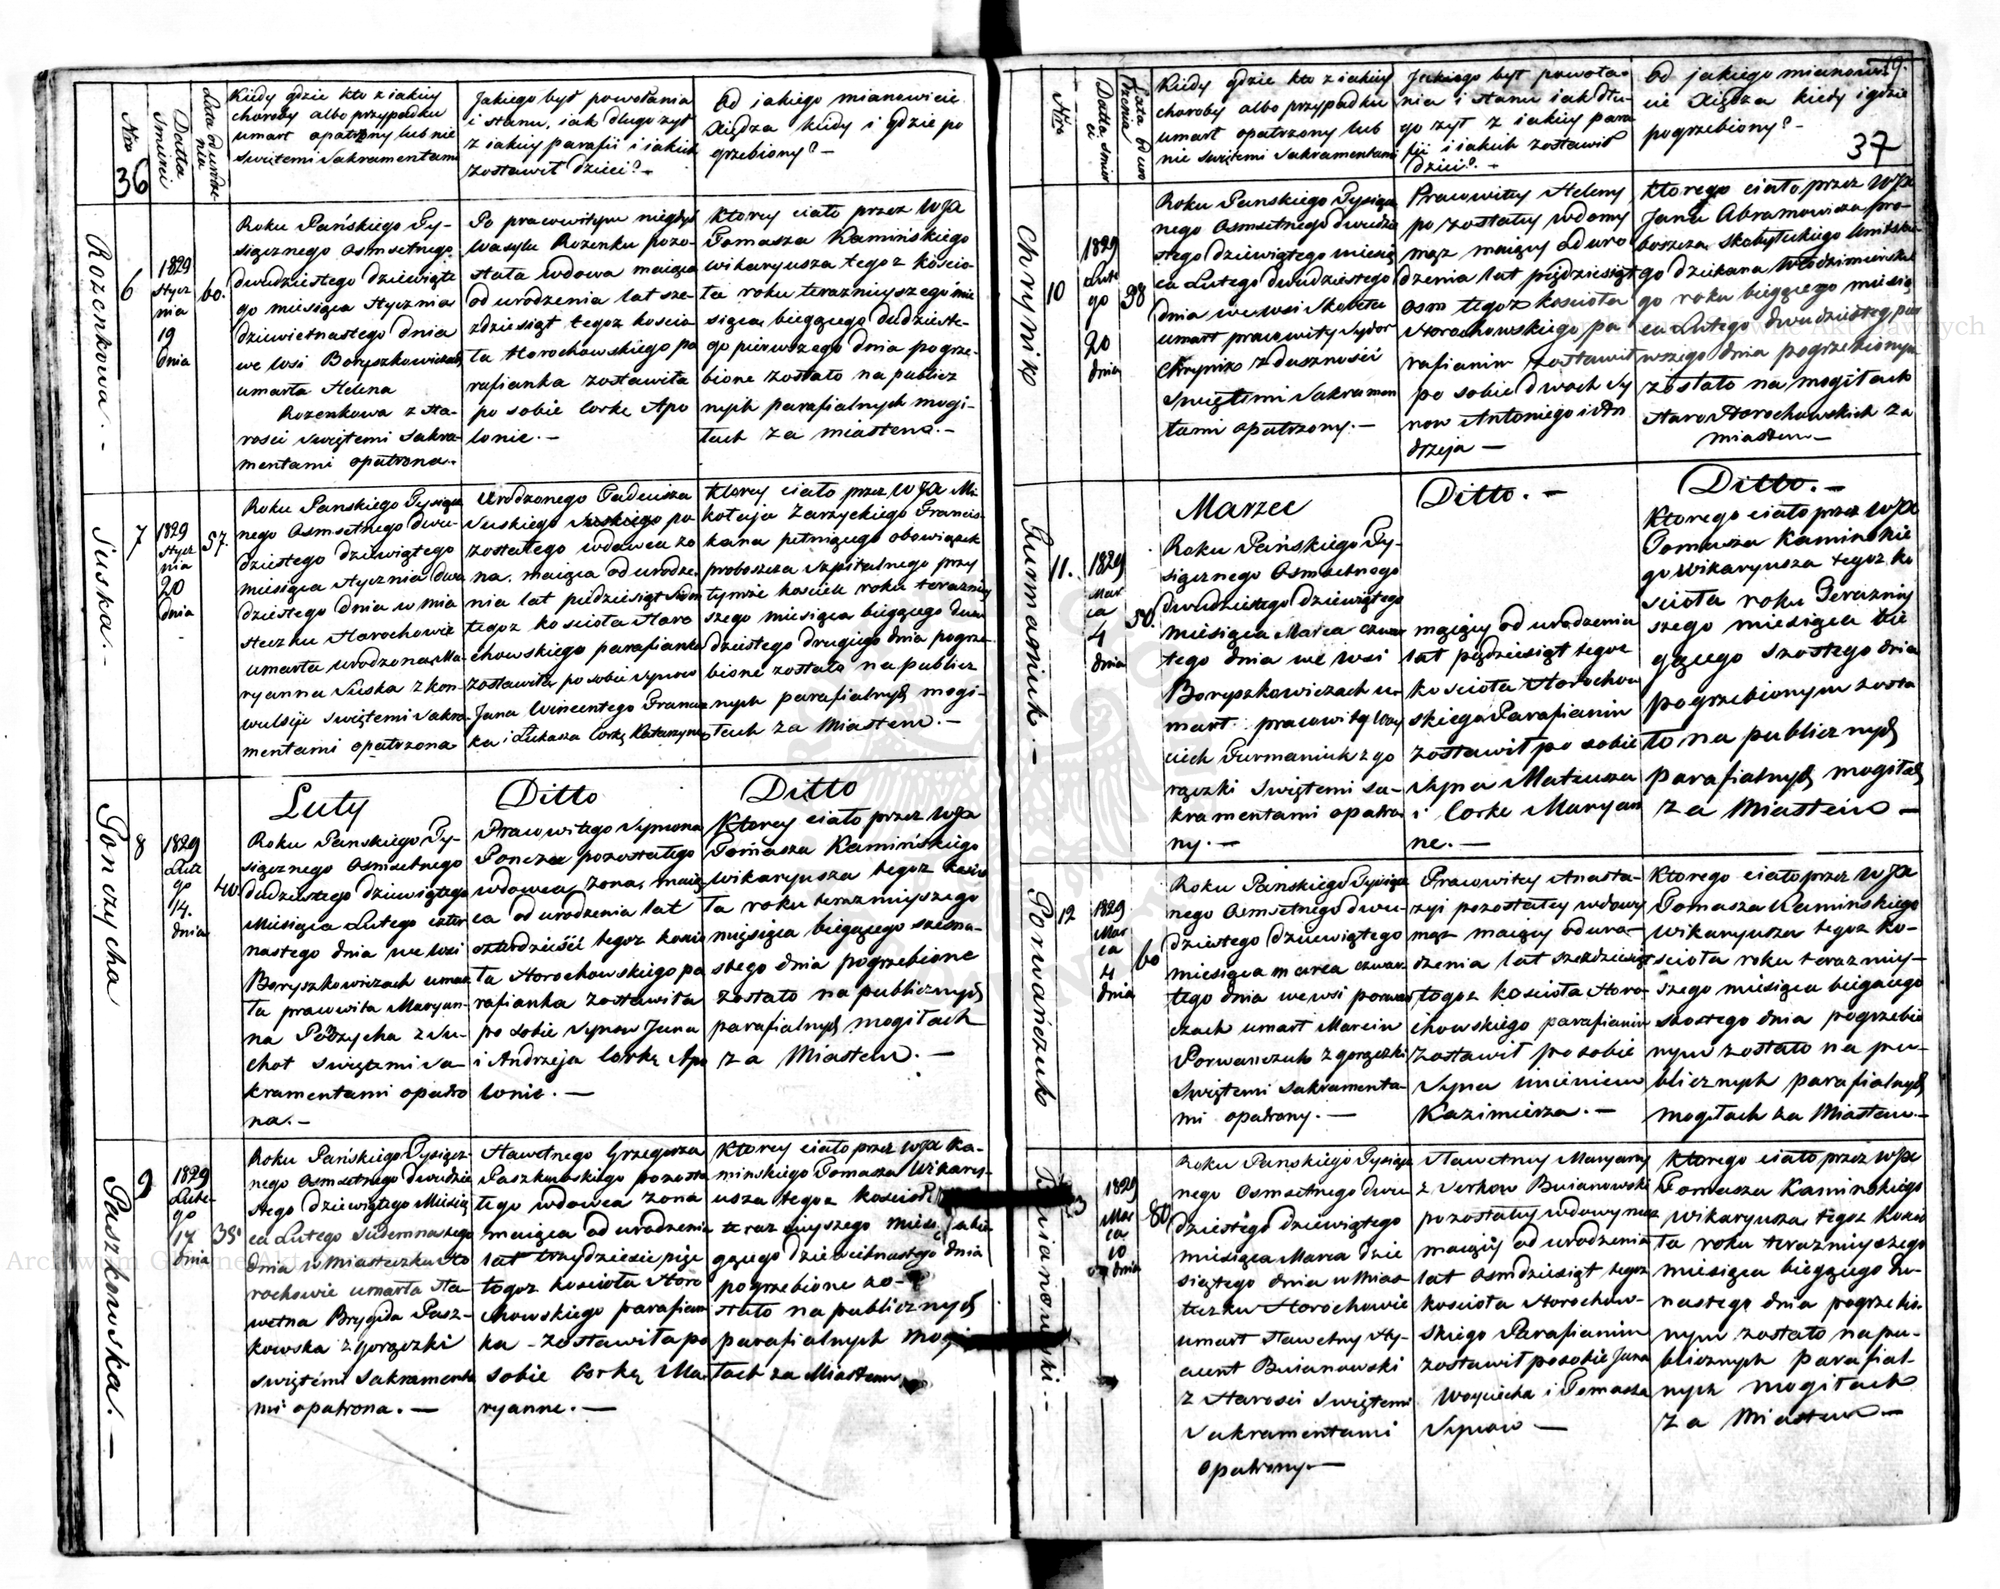 36
Nro
Datta Smierci
Lata od urodzenia
Kiedy gdzie kto z iakiey
choroby albo przypadku
umarł opatrzny lub nie
swiętemi Sakramentami
Jakiego był powołania
i stanu, iak długo zył
z iakiey parafii i iakich
zostawił dzieci? —
Od jakiego mianowicie
Xiędza kiedy i gdzie po
grzebiony? —
Rozenkowa. —
6
1829
Stycz
nia
19
dnia
60.
Roku Pańskiego Ty-
siącznego Osmsetnego
dwudziestego dziewiąte
go miesiąca Stycznia
dziewietnastego dnia
we Wsi Boryszkowiczach
umarła Helena
Rozenkowa z sta-
rosci swiętemi Sakra-
mentami opatrona.
Po pracowitym niegdyś
Wasylu Rozenku pozo-
stała wdowa maiąca
od urodzenia lat sze-
zdziesiąt tegoz koscio-
ła Horochowskiego pa
rafianka zostawiła
po sobie Corkę Apo
lonie. —
Ktorey ciało przez WJX
Tomasza Kamińskiego
wikaryusza tegoz koscio-
ła roku teraznieyszego mie
siąca bieżącego dudzieste-
go pierwszego dnia pogrze-
bione zostało na publicz
nych parafialnych mogi-
łach za miastem. —
Suska. —
7
1829
Stycz
nia
20
dnia
57.
Roku Panskiego Tysiącz
nego Osmsetnego dwu-
dziestego dziewiątego
miesiąca Stycznia dwu
dziestego dnia w mia
steczku Horochowie
umarła urodzona Ma-
ryanna Suska z kon-
wulsije swiętemi Sakra-
mentami opatrzona
Urodzonego Tadeusza
Suskiego Suskiego po
zostałego wdowca zo
na. maiąca od urodze-
nia lat piedziesiąt siedm
tegoz kosciola Horo
chowskiego parafianka
zostawiła po sobie synow
Jana Wincentego Francisz
ka i Łukasza Corkę Katarzynę
Ktorey ciało przez WJX Mi
kołaja Zarzyckiego Francis-
kana pełniącego obowiązek
proboszcza Szpitalnego przy
tymze kosciele roku terazniey
szego miesiąca bieżącego dwu
dziestego drugiego dnia pogrze
bione zostało na publicz
nych parafialnych mogi-
łach za Miastem. —
Luty
Ditto
Ditto
Ponczycha
8
1829
Lute
go
14.
dnia
40.
Roku Panskiego Ty-
siącznego Osmsetnego
dudziestego dziewiątego
Miesiąca Lutego czter
nastego dnia we Wsi
Boryszkowiczach umar
ła pracowita Maryan-
na Pończycha z su-
chot swiętemi sa-
kramentami opatro
na. —
Pracowitego Symona
Poncza pozostałego
wdowca, zona, maią
ca od urodzenia lat
czterdzieści tegoz koscio
ła Horochowskiego pa
rafianka zostawiła
po sobie synow Jana
i Andrzeja Corkę Apo
lonie. —
Ktorey ciało przez WJX
Tomasza Kamińskiego
wikaryusza tegoz koscio
ła roku teraznieyszego
miesiąca bieżącego szesna-
stego dnia pogrzebione
zostało na publicznych
parafialnych mogiłach
za Miastem. —
Paszkowska. —
9
1829
Lute-
go
17
dnia
35
Roku Pańskiego Tysiącz-
nego Osmsetnego dwudzie
stego dziewiątego Miesią
ca Lutego siedemnastego
dnia w miasteczku Ho
rochowie umarła Sła-
wetna Brygida Pasz-
kowska z gorączki
swiętemi Sakramenta
mi opatrona. —
Sławetnego Grzegorza
Paszkowskiego pozosta
łego wdowca zona
maiąca od urodzenia
lat trzydziescie pięc
tegoz kosciola Horo
chowskiego parafian
ka - zostawiła po
sobie Corkę Ma-
ryanne. —
Ktorey ciało przez WJX Ka-
minskiego Tomasza Wikary-
usza tegoz koscioła
teraznieyszego
gącego dziewietnastego dnia
pogrzebione zo-
stało na publicznych
parafialnych mogi
łach za Miastem
19.
37
Nro
Datta Smier
ci
Lata Uro
dzenia
Kiedy gdzie kto z iakiey
choroby albo przypadku
umarł opatrzony lub
nie swiętemi Sakramentami
Jakiego był powoła-
nia i stanu iak dłu-
go zył z iakiey para
fii i iakich zostawił
dzieci? —
Od jakiego mianowi-
cie Xiędza kiedy i gdzie
pogrzebiony? —
Chryniko
10
1829
Lute
go
20
dnia
58
Roku Panskiego Tysiącz
nego Osmsetnego dwudzie
stego dziewiątego miesią
ca Lutego dwudziestego
dnia we wsi Skobełce
umarł pracowity Sydor
Chryniko z duszności
Swiętemi Sakramen
tami opatrzony. —
Pracowitey Heleny
po zostałey wdowy
mąz maiący od uro
dzenia lat pięćdziesiąt
osm tegoz kościoła
Horochowskiego pa
rafianin zostawił
po sobie dwoch Sy
now Antoniego i An
drzeja —
Ktorego ciało przez WJX
Jana Abramowicza pro-
boszcza Skobyłeckiego Unitskie
go dziekana Włodzimirskie
go roku bieżącego miesią
ca Lutego dwudziesteg pier
wszego dnia pogrzebionym
zostało na mogiłach
Staro Horochowskich za
miastem —
Marzec
Ditto. —
Ditto. —
Furmaniuk. —
11.
1829
Mar
ca
4
dnia
50.
Roku Pańskiego Ty-
siącznego Osmsetnego
dwudziestego dziewiątego
miesiąca Marca czwar
tego dnia we wsi
Boryszkowiczach u-
marł pracowity Woy
ciech Furmaniuk z go
rączki Swiętemi Sa-
kramentami opatro
ny. —
maiący od urodzenia
lat pięćdziesiąt tegoz
kosciola Horochow
skiego Parafianin
zostawił po sobie
Syna Mateusza
i Corke Maryan
ne. —
Ktorego ciało przez WJX
Tomasza Kamińskie
go Wikaryusza tegoz ko
scioła roku Terazniey
szego miesiąca bie
gącego szostego dnia
pogrzebionym zosta
ło na publicznych
parafialnych mogiłach
za Miastem —
Porwańczuk
12
1829
Mar
ca
4
dnia
60
Roku Pańskiego Tysiącz
nego Osmsetnego dwu-
dziestego dziewiątego
miesiąca marca czwar
tego dnia we wsi porwań
czach umarł Marcin
Porwanczuk z gorączki
Swiętemi Sakramenta-
mi opatrony. —
Pracowitey Anasta-
zyi pozostałey wdowy
mąz maiący od uro-
dzenia lat szezdziesiąt
tegoz kościoła Horo-
chowskiego parafianin
zostawił po sobie
Syna imieniem
Kazimierza. —
Ktorego ciało przez WJX
Tomasza Kamińskiego
Wikaryusza tegoz ko-
scioła roku terazniey-
szego miesiąca bieżącego
szostego dnia pogrzebio
nym zostało na pu-
blicznych parafialnych
mogiłach za Miastem. —
1829
Mar
ca
10
dnia
80
Roku Panskiego Tysiącz
nego Osmsetnego dwu
dziestego dziewiątego
miesiąca Marca dzie
siątego dnia w Mias-
teczku Horochowie
umarł sławetny Hy-
acent Buianowski
z Starosci Swiętemi
Sakramentami
opatrony. —
Sławetney Maryanny
z Serkow Buianowski
pozostałey wdowy mąz
maiący od urodzenia
lat osmdziesiąt tegoz
kościoła Horochow-
skiego Parafianin
zostawił po sobie Jana
Woyciecha i Tomasza
Synow —
Ktorego ciało przez WJX
Tomasza Kaminskiego
wikaryusza tegoz koscio
ła roku teraznieyszego
miesiąca bieżącego du-
nastego dnia pogrzebio-
nym zostało na pu-
blicznych parafial-
nych mogiłach
za Miastem —